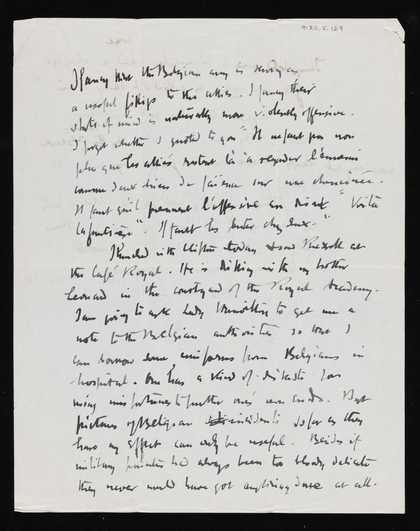 9120.5.129
I fancy that the Belgian army is serving as
a useful fillip to the allies. I fancy their
state of mind is naturally more violently offensive.
I forget whether I quoted to you "Il ne faut pas non
plus que les alliés restent là à regarder l'ennemi
comme deux chiens de faïence sur une cheminée.
Il faut qu'il prennent l'offensive en disant "Voila
la frontière". Il faut les buter chez eux."
I lunched with Clifton today at
the Café Royal. He is drilling with my brother
Leonard in the courtyard of the Royal Academy.
I am going to ask Lady to get me a
note to the Belgian authorities so that I
can borrow some uniforms from Belgians in
hospital. One has a kind of distaste for
using misfortunes to further one's own ends. But
pictures of Belgian incidents so far as they
have any effect can only be useful. Besides if
military painters had always been too bloody delicate
they never would have got anything done at all.